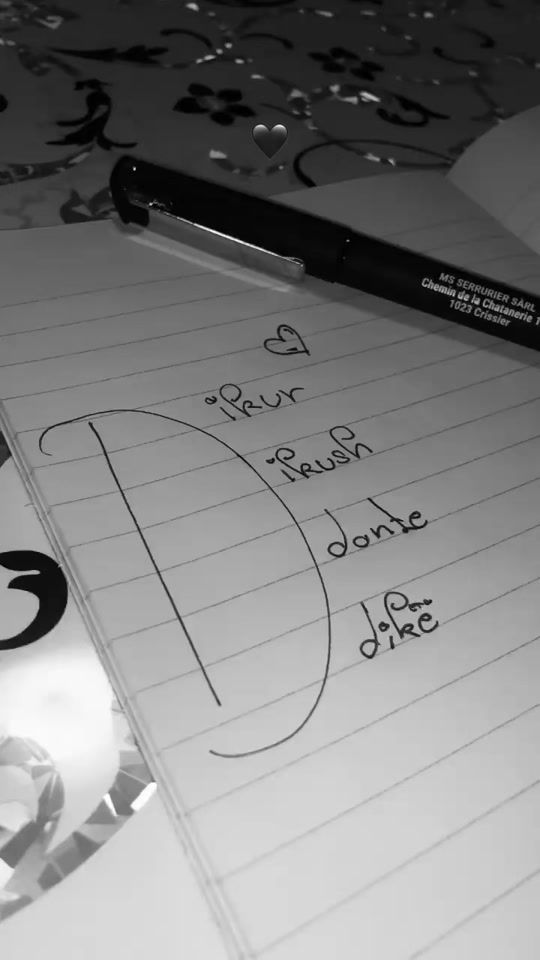 MS SERRURIER SÀRL
Chemin de la Chatanerie 1
1023 Crissier
D
ikur
ikush
donte
dikë